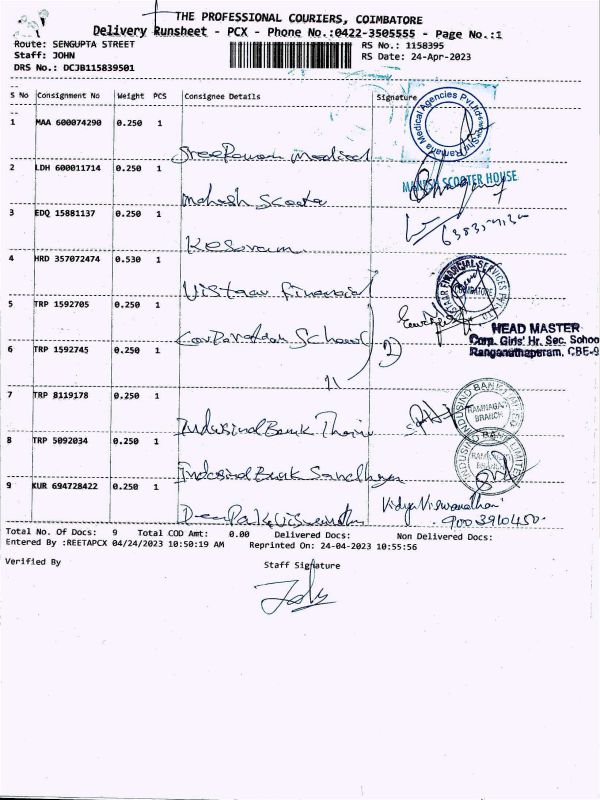 THE PROFESSIONAL COURIERS, COIMBATORE
Delivery Runsheet - PCX - Phone No.:0422-3505555 - Page No.:1
Route: SENGUPTA STREET RS No.: 1158395
Staff: JOHN RS Date: 24-Apr-2023
DRS No.: DCJB115839501
S No Consignment No Weight PCS Consignee Details Signature
1 MAA 600074290 0.250 1
Medical
2 LDH 600011714 0.250 1
MAHESH SCOOTER HOUSE
Mahesh Scooter
3 EDQ 15881137 0.250 1
Kesavam
4 HRD 357072474 0.530 1
Vistaar Financial
5 TRP 1592705 0.250 1
HEAD MASTER
Corp. Girls' Hr. Sec. Schoo
Ranganathapuram, CBE-9
School
6 TRP 1592745 0.250 1
2)
11
7 TRP 8119178 0.250 1
INDUSIND BANK LIMITED
RAMNAGAR
BRANCH
IndusindBank
8 TRP 5092034 0.250 1
IndusindBank Sandhya
9 KUR 694728422 0.250 1
Vidya Viswanathan
Deepak Viswanathan 9003910450
Total No. Of Docs: 9 Total COD Amt: 0.00 Delivered Docs: Non Delivered Docs:
Entered By :REETAPCX 04/24/2023 10:50:19 AM Reprinted On: 24-04-2023 10:55:56
Verified By Staff Signature